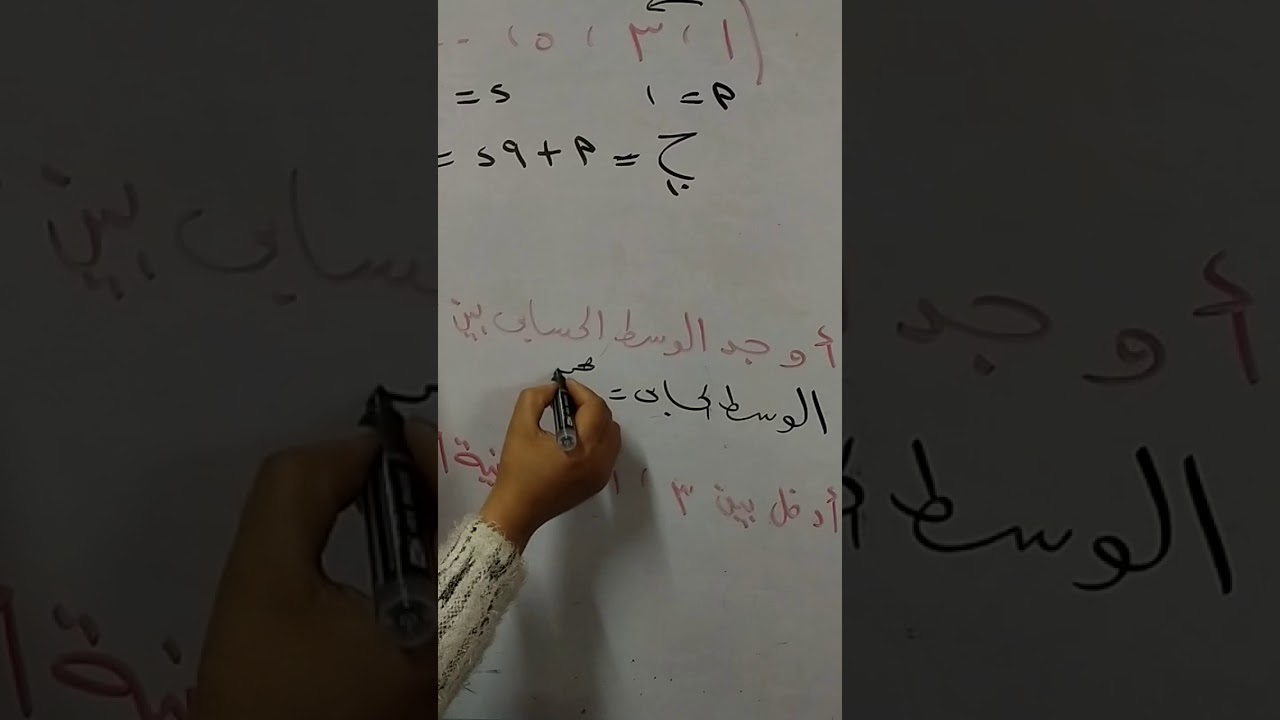 (١ ، ٣ ، ٥ ، - -
م = ١ د =
ح١٠ = م + ٩د =
أوجد الوسط الحسابى بين
الوسط الحسابى =
أدخل بين ٣ ، ١